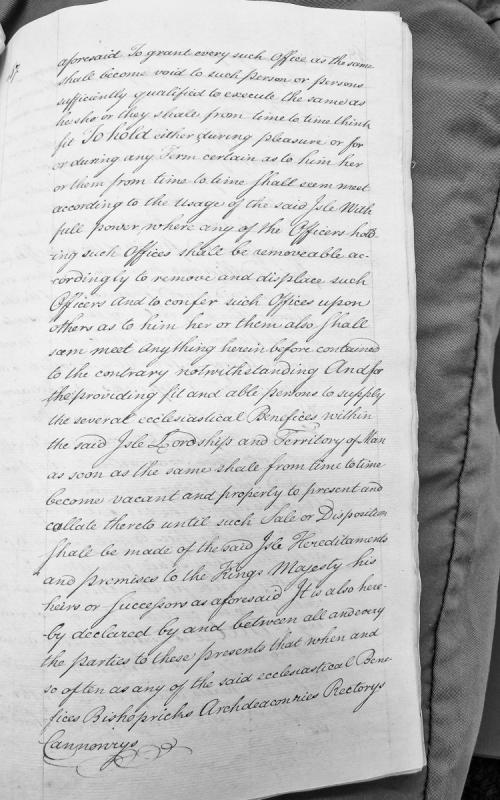 aforesaid To grant every such Office as the same
shall become void to such person or persons
sufficiently qualified to execute the same as
he she or they shall from time to time think
fit To hold either during pleasure or for
or during any Term certain as to him her
or them from time to time shall seem meet
according to the usage of the said Isle With
full power where any of the Officers hold-
ing such Offices shall be removeable ac-
cordingly to remove and displace such
Officers and to confer such Offices upon
others as to him her or them also shall
seem meet any thing herein before contained
to the contrary notwithstanding And for
the providing fit and able persons to supply
the several ecclesiastical Benefices within
the said Isle Lordship and Territory of Man
as soon as the same shall from time to time
become vacant and properly to present and
collate thereto until such Sale or Disposition
shall be made of the said Isle Hereditaments
and premises to the Kings Majesty his
heirs or Successors as aforesaid It is also here-
by declared by and between all and every
the parties to these presents that when and
so often as any of the said ecclesiastical Bene-
fices Bishopricks Archdeaconries Rectorys
Cannonrys